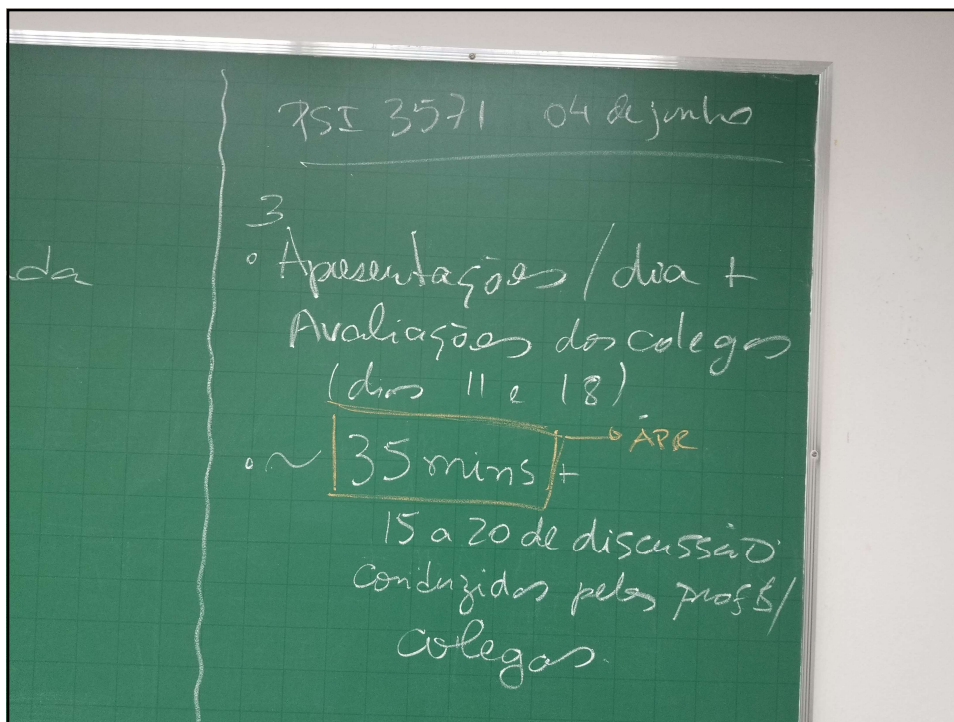 PSI 3571 04 de junho
3
• Apresentações / dia +
Avaliações dos colegas
(dias 11 e 18)
• ~ 35 mins + → APR
15 a 20 de discussão
conduzidas pelos profs /
colegas.